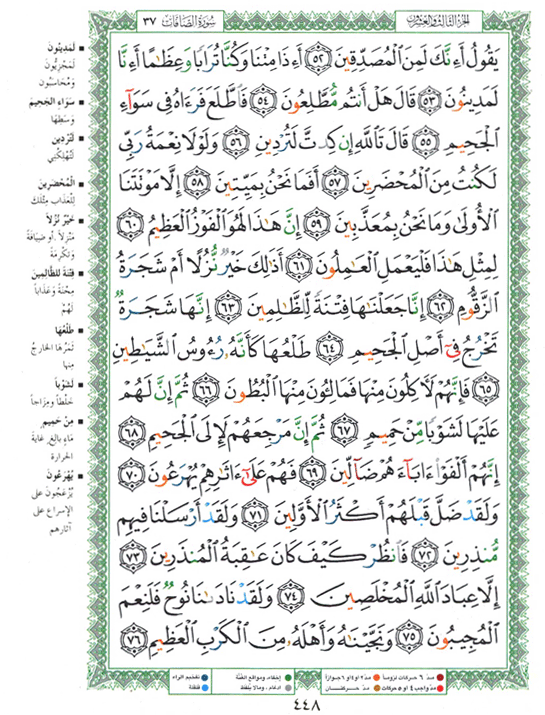 الجزء الثالث والعشرون
سورة الصافات ٣٧
يَقُولُ أَءِنَّكَ لَمِنَ ٱلْمُصَدِّقِينَ ٥٢ أَءِذَا مِتْنَا وَكُنَّا تُرَابًا وَعِظَٰمًا أَءِنَّا
لَمَدِينُونَ ٥٣ قَالَ هَلْ أَنتُم مُّطَّلِعُونَ ٥٤ فَٱطَّلَعَ فَرَءَاهُ فِى سَوَآءِ
ٱلْجَحِيمِ ٥٥ قَالَ تَٱللَّهِ إِن كِدتَّ لَتُرْدِينِ ٥٦ وَلَوْلَا نِعْمَةُ رَبِّى
لَكُنتُ مِنَ ٱلْمُحْضَرِينَ ٥٧ أَفَمَا نَحْنُ بِمَيِّتِينَ ٥٨ إِلَّا مَوْتَتَنَا
ٱلْأُولَىٰ وَمَا نَحْنُ بِمُعَذَّبِينَ ٥٩ إِنَّ هَٰذَا لَهُوَ ٱلْفَوْزُ ٱلْعَظِيمُ ٦٠
لِمِثْلِ هَٰذَا فَلْيَعْمَلِ ٱلْعَٰمِلُونَ ٦١ أَذَٰلِكَ خَيْرٌ نُّزُلًا أَمْ شَجَرَةُ
ٱلزَّقُّومِ ٦٢ إِنَّا جَعَلْنَٰهَا فِتْنَةً لِّلظَّٰلِمِينَ ٦٣ إِنَّهَا شَجَرَةٌ
تَخْرُجُ فِىٓ أَصْلِ ٱلْجَحِيمِ ٦٤ طَلْعُهَا كَأَنَّهُۥ رُءُوسُ ٱلشَّيَٰطِينِ
٦٥ فَإِنَّهُمْ لَءَاكِلُونَ مِنْهَا فَمَالِـُٔونَ مِنْهَا ٱلْبُطُونَ ٦٦ ثُمَّ إِنَّ لَهُمْ
عَلَيْهَا لَشَوْبًا مِّنْ حَمِيمٍ ٦٧ ثُمَّ إِنَّ مَرْجِعَهُمْ لَإِلَى ٱلْجَحِيمِ ٦٨
إِنَّهُمْ أَلْفَوْا۟ ءَابَآءَهُمْ ضَآلِّينَ ٦٩ فَهُمْ عَلَىٰٓ ءَاثَٰرِهِمْ يُهْرَعُونَ ٧٠
وَلَقَدْ ضَلَّ قَبْلَهُمْ أَكْثَرُ ٱلْأَوَّلِينَ ٧١ وَلَقَدْ أَرْسَلْنَا فِيهِم
مُّنذِرِينَ ٧٢ فَٱنظُرْ كَيْفَ كَانَ عَٰقِبَةُ ٱلْمُنذَرِينَ ٧٣
إِلَّا عِبَادَ ٱللَّهِ ٱلْمُخْلَصِينَ ٧٤ وَلَقَدْ نَادَىٰنَا نُوحٌ فَلَنِعْمَ
ٱلْمُجِيبُونَ ٧٥ وَنَجَّيْنَٰهُ وَأَهْلَهُۥ مِنَ ٱلْكَرْبِ ٱلْعَظِيمِ ٧٦
لَمَدِينُونَ
لَمَجْزِيُّونَ
وَمُحَاسَبُونَ
سَوَاءِ الجَحِيمِ
وَسَطِهَا
لَتُرْدِينِ
لَتُهْلِكُنِي
الْمُحْضَرِينَ
لِلْعَذَابِ مِثْلَكَ
خَيْرٌ نُزُلاً
مَنْزِلاً، أو ضِيَافَةً
وتَكْرِمَةً
فِتْنَةً لِلظَّالِمِينَ
مِحْنَةً وَعَذَاباً
لَهُمْ
طَلْعُهَا
ثَمَرُهَا الخارجُ
منها
لَشَوْباً
خَلْطاً ومِزَاجاً
مِنْ حَمِيمٍ
ماءٍ بالغٍ غايةَ
الحرارة
يُهْرَعُونَ
يُزْعَجُونَ على
الإسراعِ على
آثارهم
مدّ ٦ حركات لزوماً
مدّ ٢ أو ٤ أو ٦ جوازاً
إخفاء، ومواقع الغنّة
تفخيم الراء
مدّ واجب ٤ أو ٥ حركات
مدّ حركتان
إدغام، وما لا يلفظ
قلقلة
٤٤٨